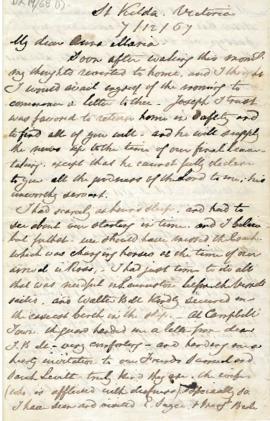 DX 19/68 (1)
St Kilda. Victoria
7/12/67
My dear Anna Maria
Soon after waking this morng
my thoughts reverted to home, and I thought
I would avail myself of the morning to
commence a letter to thee. Joseph I trust
was favored to return home in safety and
to find all of you well - and he will supply
the news up to the time of our final leave
taking, except that he cannot fully declare
to you all the goodness of the Lord to me, his
unworthy servant.
I had scarcely a hours sleep, and had to
see about our starting in time, and I believe
but for that we should have missed the Coach
which was changing horses at the time of our
arrival at Ross, - I had just time to do all
that was needful
sides, and Walter Ball kindly secured me
the easiest berth in the ship. - At Campbell
Town a guard handed me a letter from dear
J.B. &c - very comforting - and handing on a
hearty invitation to our Friends Samuel and
Sarah Levitt truly kind
(who is afflicted with deafness) especially so
I have seen and visited E. Sayce &